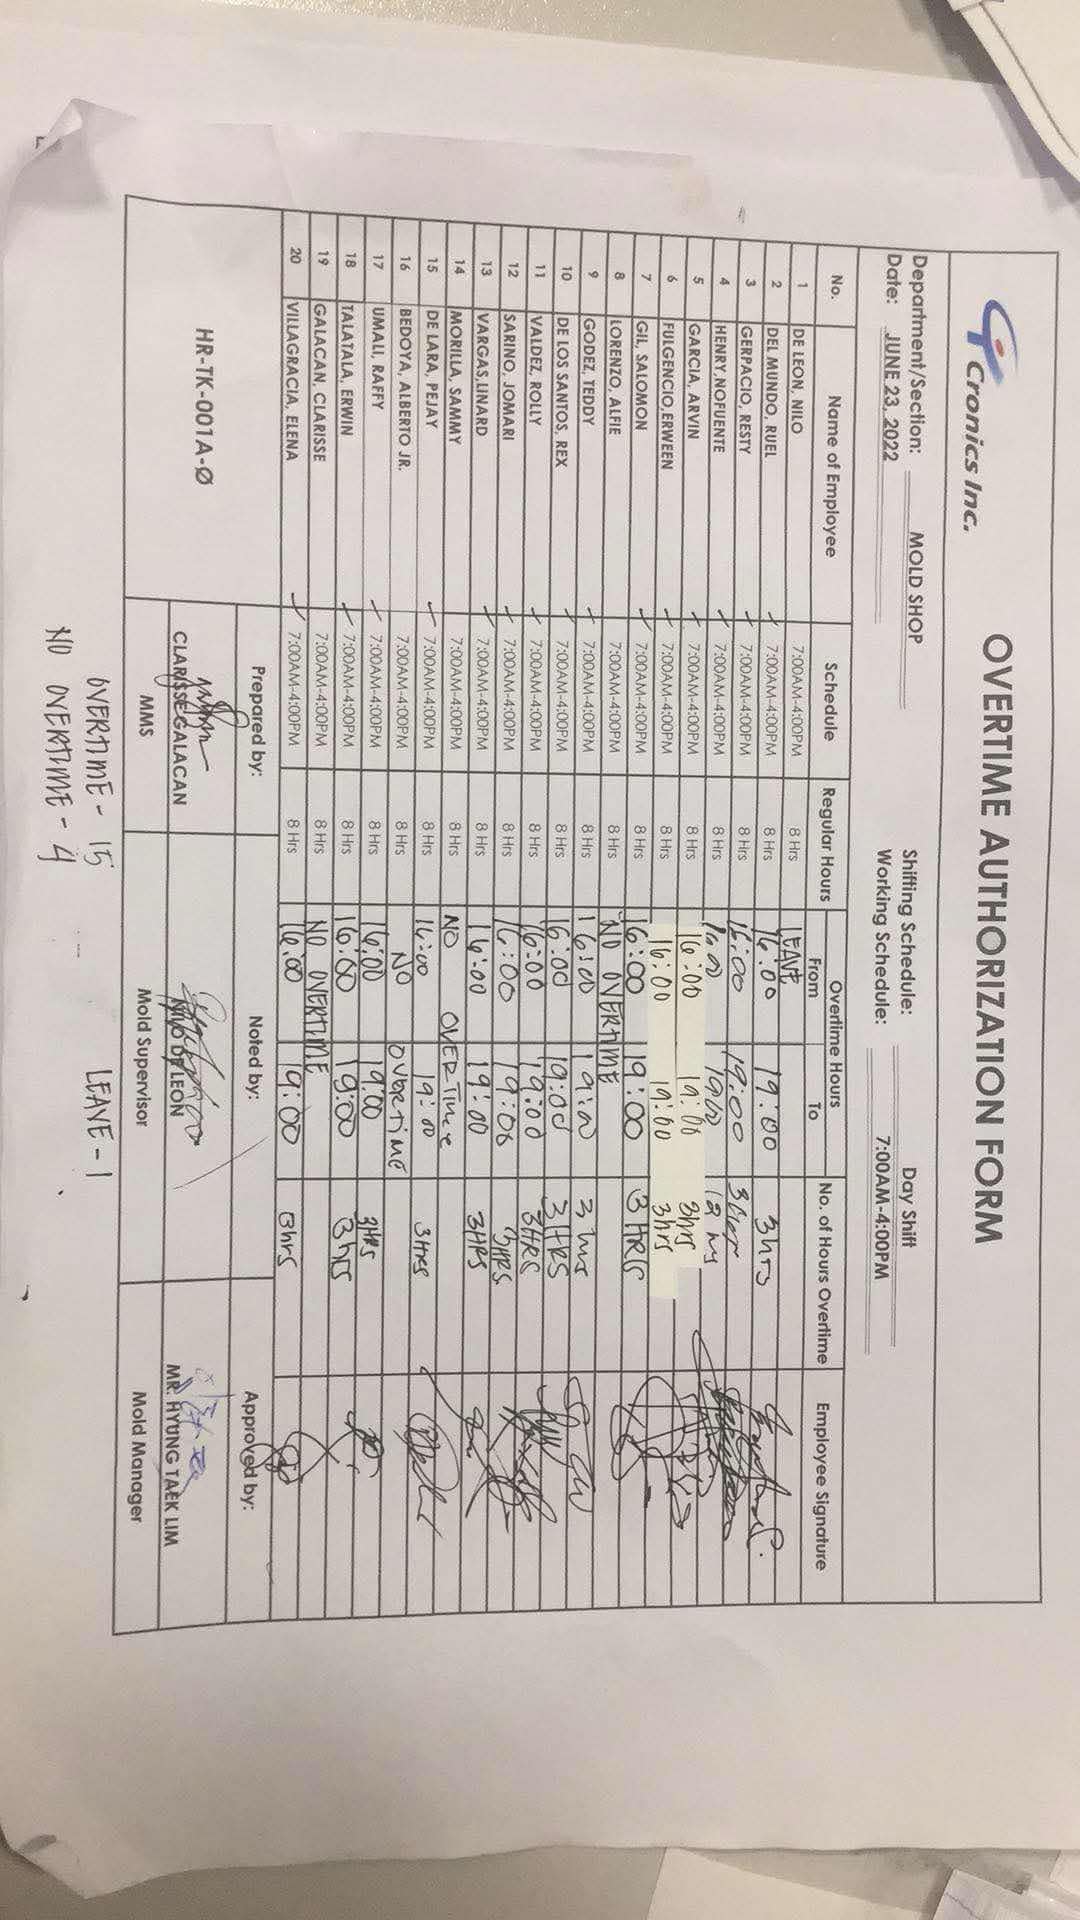 Cronics Inc.
OVERTIME AUTHORIZATION FORM
Department/Section: MOLD SHOP Shifting Schedule: Day Shift
Date: JUNE 23, 2022 Working Schedule: 7:00AM-4:00PM
No. Name of Employee Schedule Regular Hours Overtime Hours No. of Hours Overtime Employee Signature
From To
1 DE LEON, NILO 7:00AM-4:00PM 8 Hrs LEAVE
2 DEL MUNDO, RUEL 7:00AM-4:00PM 8 Hrs 16:00 19:00 3hrs
3 GERPACIO, RESTY 7:00AM-4:00PM 8 Hrs 16:00 19:00
4 HENRY,NOFUENTE 7:00AM-4:00PM 8 Hrs 16:00 19:00
5 GARCIA, ARVIN 7:00AM-4:00PM 8 Hrs 16:00 19:00 3hrs
6 FULGENCIO,ERWEEN 7:00AM-4:00PM 8 Hrs 16:00 19:00 3hrs
7 GIL, SALOMON 7:00AM-4:00PM 8 Hrs 16:00 19:00 3 HRS
8 LORENZO, ALFIE 7:00AM-4:00PM 8 Hrs NO OVERTIME
9 GODEZ, TEDDY 7:00AM-4:00PM 8 Hrs 16:00 19:00 3 hrs
10 DE LOS SANTOS, REX 7:00AM-4:00PM 8 Hrs 16:00 19:00 3HRS
11 VALDEZ, ROLLY 7:00AM-4:00PM 8 Hrs 16:00 19:00 3HRS
12 SARINO, JOMARI 7:00AM-4:00PM 8 Hrs 16:00 19:00 3HRS
13 VARGAS,LINARD 7:00AM-4:00PM 8 Hrs 16:00 19:00 3HRS
14 MORILLA, SAMMY 7:00AM-4:00PM 8 Hrs NO OVERTIME
15 DE LARA, PEJAY 7:00AM-4:00PM 8 Hrs 16:00 19:00 3HRS
16 BEDOYA, ALBERTO JR. 7:00AM-4:00PM 8 Hrs NO OVERTIME
17 UMALI, RAFFY 7:00AM-4:00PM 8 Hrs 16:00 19:00 3HRS
18 TALATALA, ERWIN 7:00AM-4:00PM 8 Hrs 16:00 19:00 3hrs
19 GALACAN, CLARISSE 7:00AM-4:00PM 8 Hrs NO OVERTIME
20 VILLAGRACIA, ELENA 7:00AM-4:00PM 8 Hrs 16:00 19:00 3hrs
Prepared by: Noted by: Approved by:
HR-TK-001A-Ø
CLARISSE GALACAN NILO DE LEON MR. HYUNG TAEK LIM
MMS Mold Supervisor Mold Manager
OVERTIME - 15 LEAVE - 1
NO OVERTIME - 4